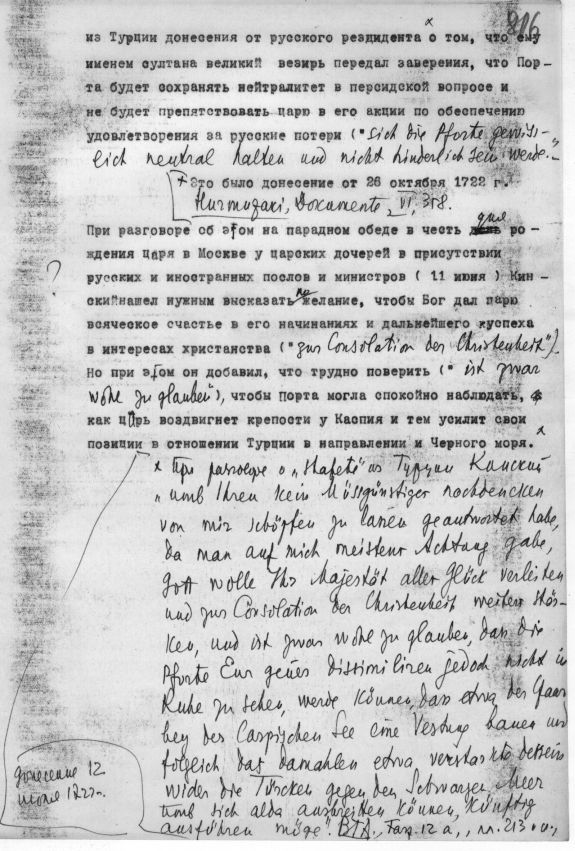 216
из Турции донесения от русского рездидента о том, что ему
именем султана великий везирь передал заверения, что Пор-
та будет сохранять нейтралитет в персидской вопросе и
не будет препятствовать царю в его акции по обеспечению
удовлетворения за русские потери ("sich die Pforte gewiss-
lich neutral halten und nicht hinderlich sein werde".
+ Это было донесение от 26 октября 1722 г.
Hurmuzaki, Documente, VI, 358.
При разговоре об этом на парадном обеде в честь дня ро-
ждения Царя в Москве у царских дочерей в присутствии
русских и иностранных послов и министров ( 11 июня ) Кин-
скийнашел нужным высказать пожелание, чтобы Бог дал царю
? всяческое счастье в его начинаниях и дальнейшего успеха
в интересах христанства ("zur Consolation der Christenheit").
Но при этом он добавил, что трудно поверить (" ist zwar
wohl zu glauben"), чтобы Порта могла спокойно наблюдать,
как царь воздвигнет крепости у Каспия и тем усилит свои
позиции в отношении Турции в направлении и Черного моря. x
x При разговоре о "Stafete" из Турции Кинский
"umb Ihren kein Missgünstiger nachdencken
von mir schöpfen zu lassen geantwortet habe,
da man auf mich meistens Achtung gabe,
Gott wolle Ihr Majestät aller Glück verleihen
und zur Consolation der Christenheit weiters stär-
ken, und ist zwar wohl zu glauben, dass die
Pforte dissimiliren jedoch nicht in
Ruhe zu sehen, werde können, dass etwa der Czaar
bey der Caspischen See eine Vestung bauen und
folgleich das damahlen etwa verstarkte dessein
wider die Türcken gegen den Schwarzen Meer
umb sich alda ausbreiten können, künftig
ausführen möge". Fasz. 12 a, 213
донесение 12
июля 1723 г.